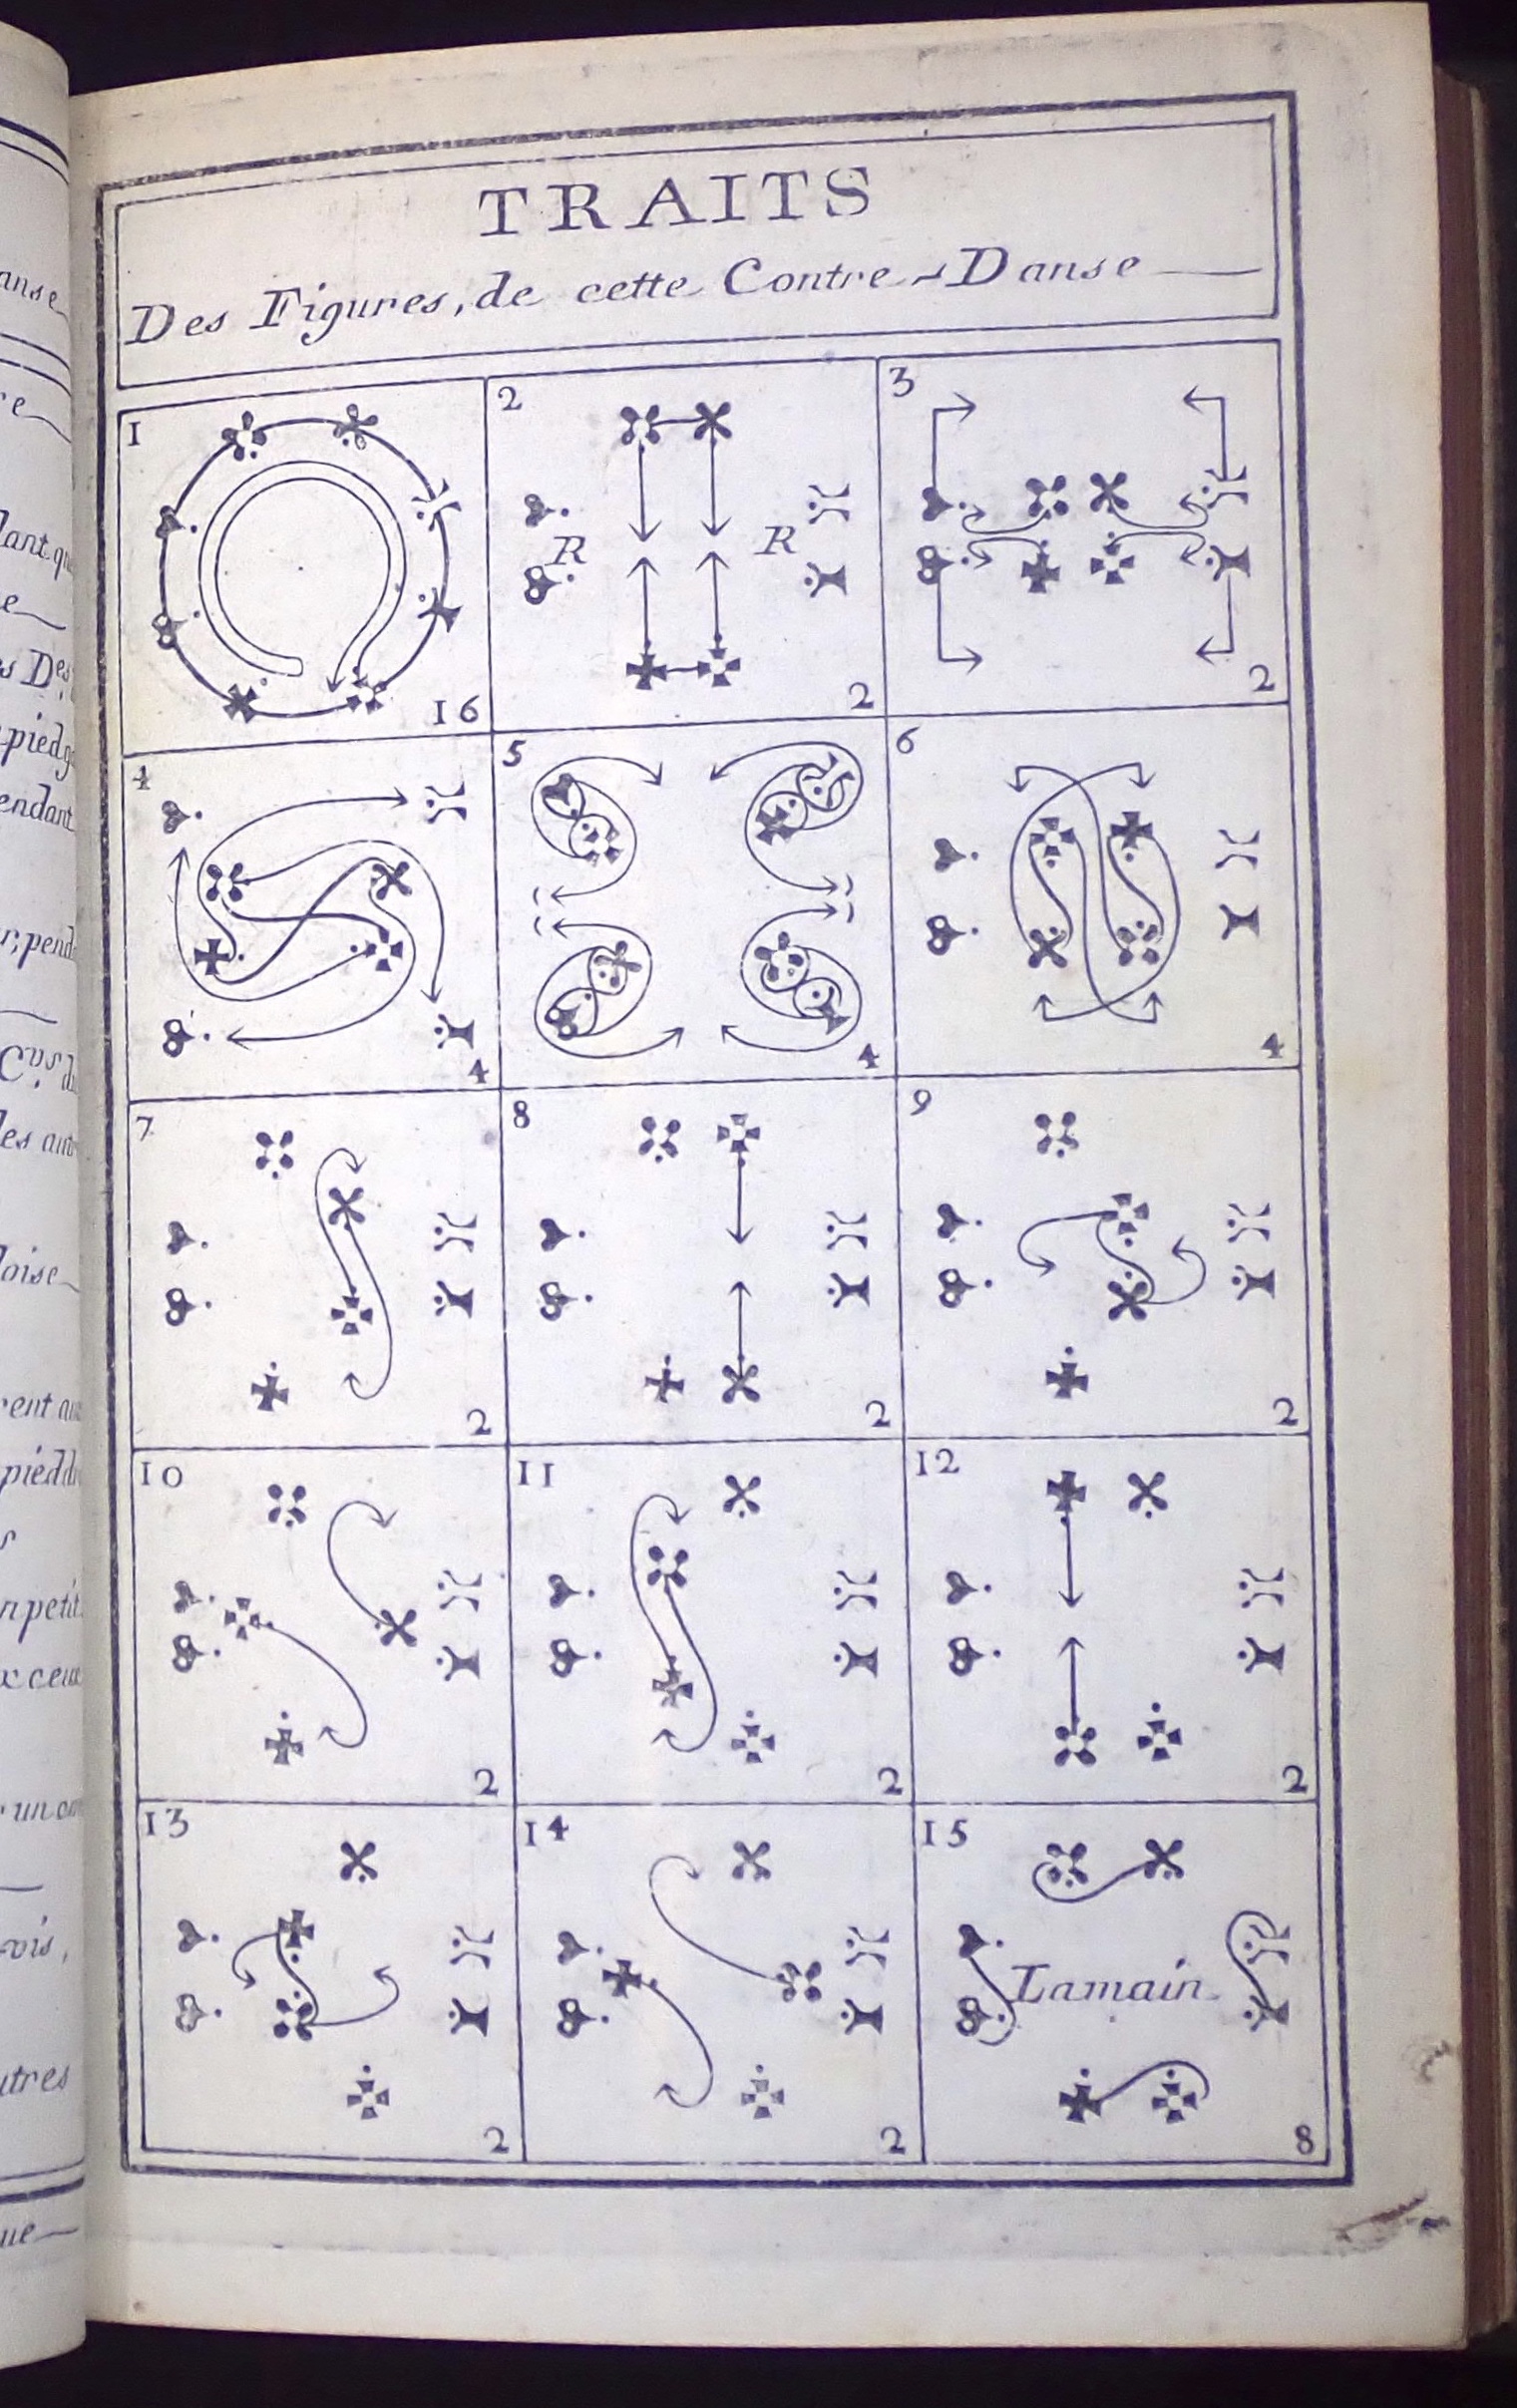 TRAITS
Des Figures, de cette Contre-Danse
1
16
2
R
R
2
3
2
4
4
5
4
6
4
7
2
8
2
9
2
10
2
11
2
12
2
13
2
14
2
15
Lamain
8